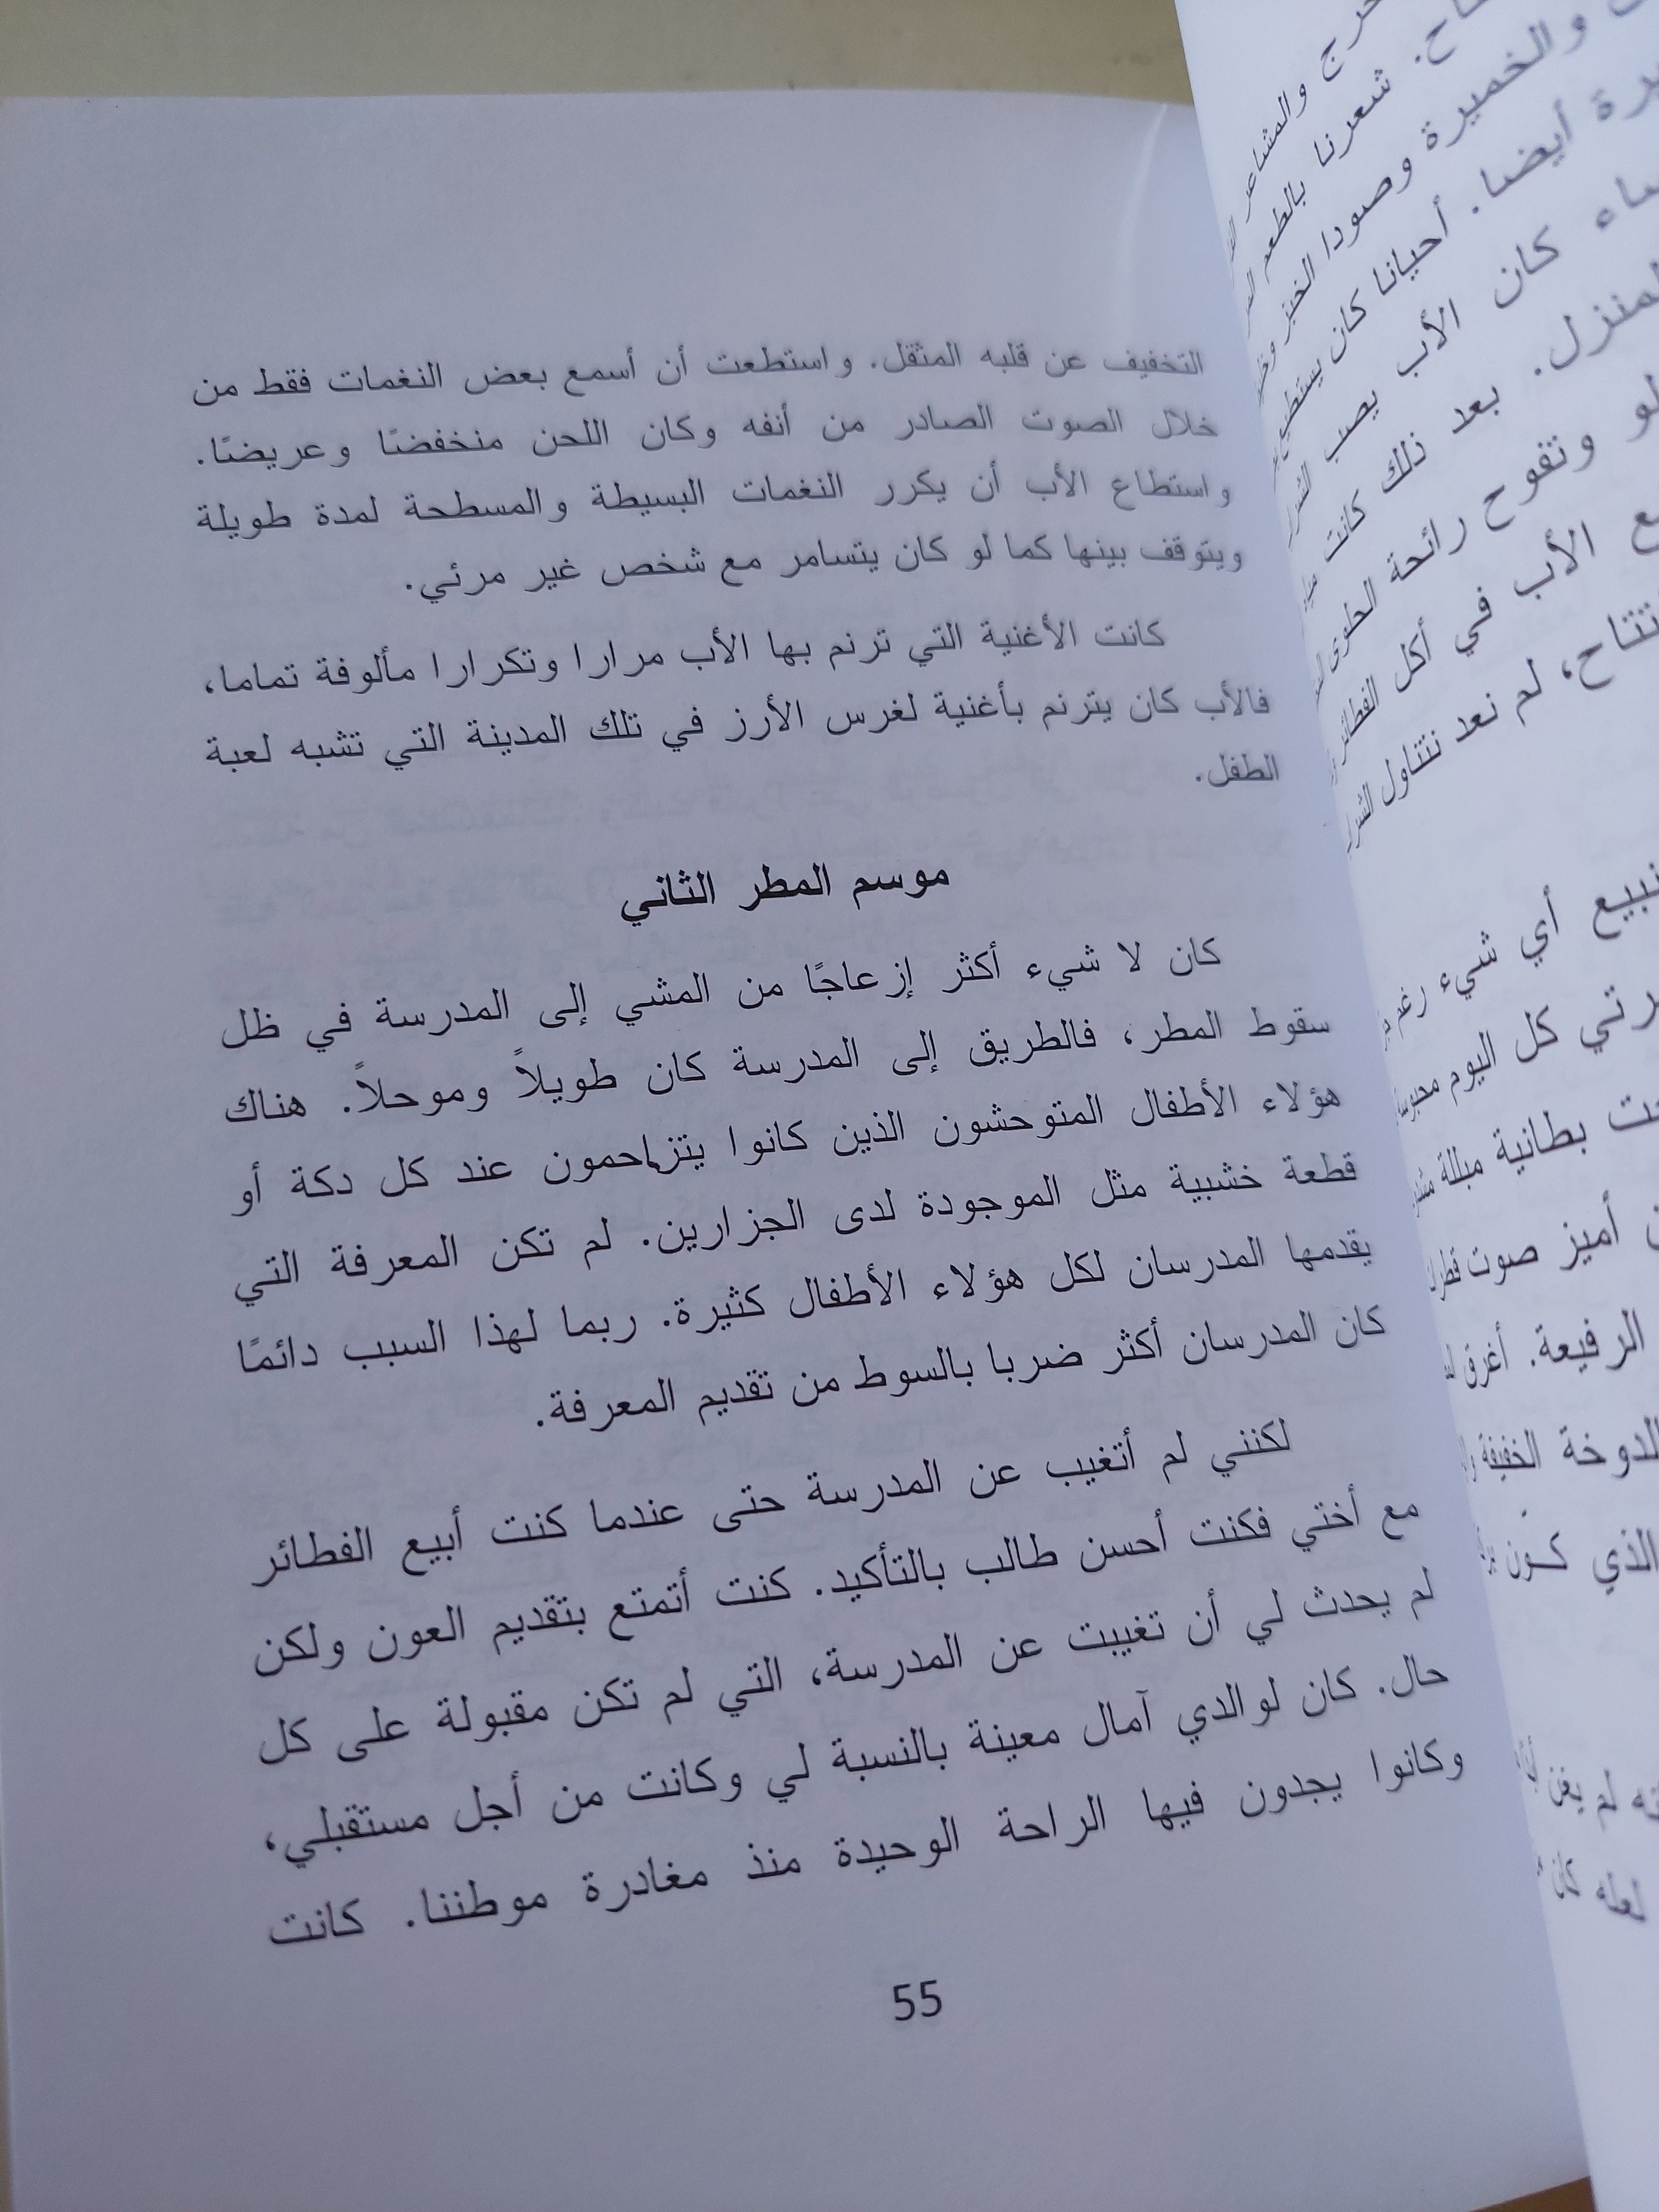 التخفيف عن قلبه المثقل. واستطعت أن أسمع بعض النغمات فقط من
خلال الصوت الصادر من أنفه وكان اللحن منخفضًا وعريضًا.
واستطاع الأب أن يكرر النغمات البسيطة والمسطحة لمدة طويلة
ويتوقف بينها كما لو كان يتسامر مع شخص غير مرئي.
كانت الأغنية التي ترنم بها الأب مرارا وتكرارا مألوفة تماما،
فالأب كان يترنم بأغنية لغرس الأرز في تلك المدينة التي تشبه لعبة
الطفل.
موسم المطر الثاني
كان لا شيء أكثر إزعاجًا من المشي إلى المدرسة في ظل
سقوط المطر، فالطريق إلى المدرسة كان طويلاً وموحلاً. هناك
هؤلاء الأطفال المتوحشون الذين كانوا يتزاحمون عند كل دكة أو
قطعة خشبية مثل الموجودة لدى الجزارين. لم تكن المعرفة التي
يقدمها المدرسان لكل هؤلاء الأطفال كثيرة. ربما لهذا السبب دائمًا
كان المدرسان أكثر ضربا بالسوط من تقديم المعرفة.
لكنني لم أتغيب عن المدرسة حتى عندما كنت أبيع الفطائر
مع أختي فكنت أحسن طالب بالتأكيد. كنت أتمتع بتقديم العون ولكن
لم يحدث لي أن تغيبت عن المدرسة، التي لم تكن مقبولة على كل
حال. كان لوالدي آمال معينة بالنسبة لي وكانت من أجل مستقبلي،
وكانوا يجدون فيها الراحة الوحيدة منذ مغادرة موطننا. كانت
55
والمشاعر
شعرنا بالطعم
والخميرة وصودا الخبز
أيضا. أحيانا كان يستطيع
كان الأب يصب
المنزل. بعد ذلك كانت
وتفوح رائحة الحلوى
الأب في أكل الفطائر
لم نعد نتناول
نبيع أي شيء رغم
كل اليوم
بطانية مبللة
أميز صوت
الرفيعة. أغرق
الدوخة الخفيفة
الذي كون
لم يغن
لعله كان